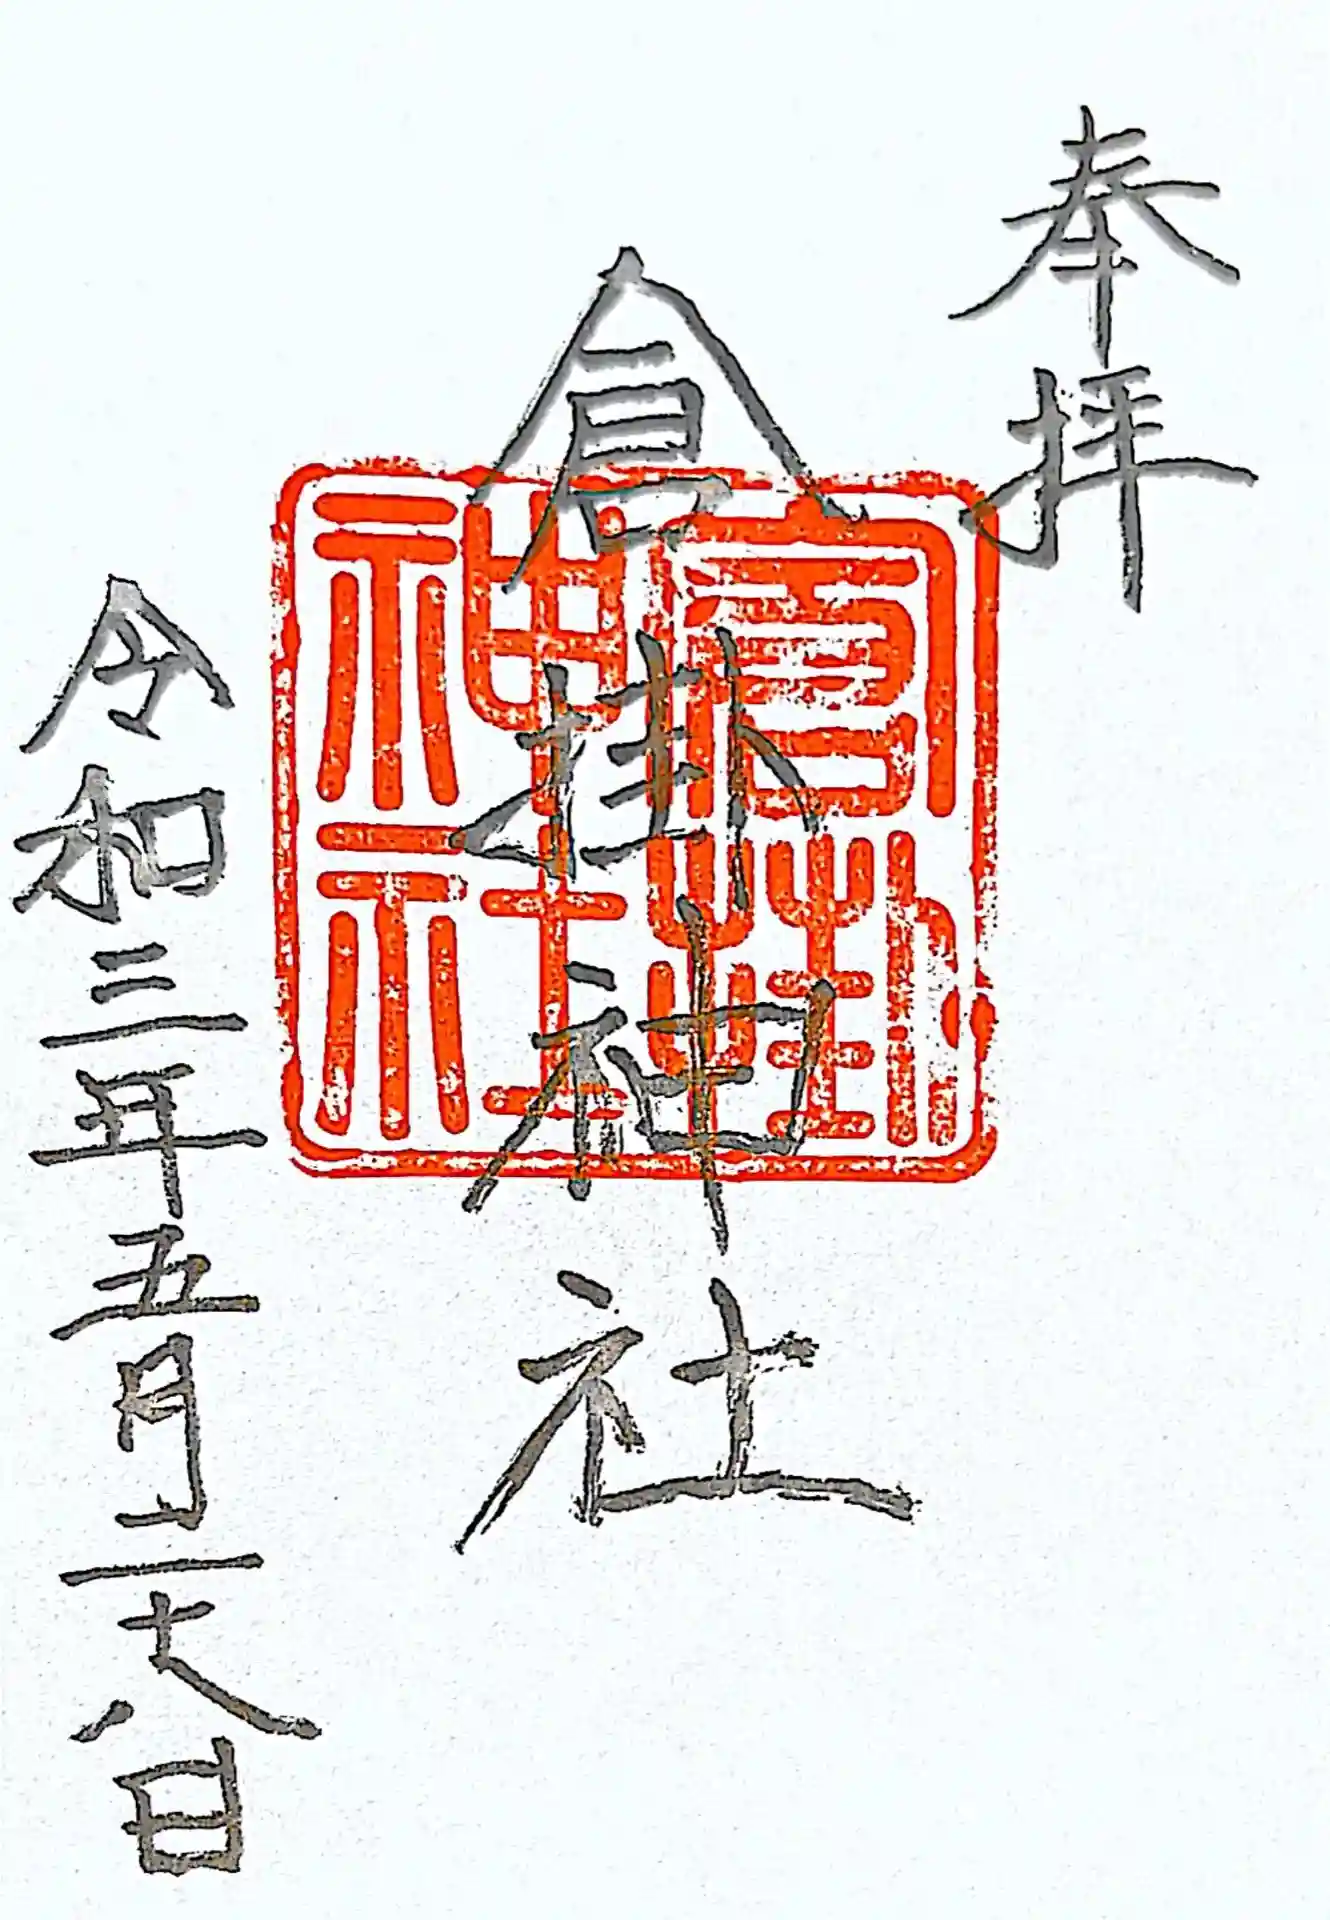 奉拝
倉掛神社
倉掛
神社
令和三年五月二十八日